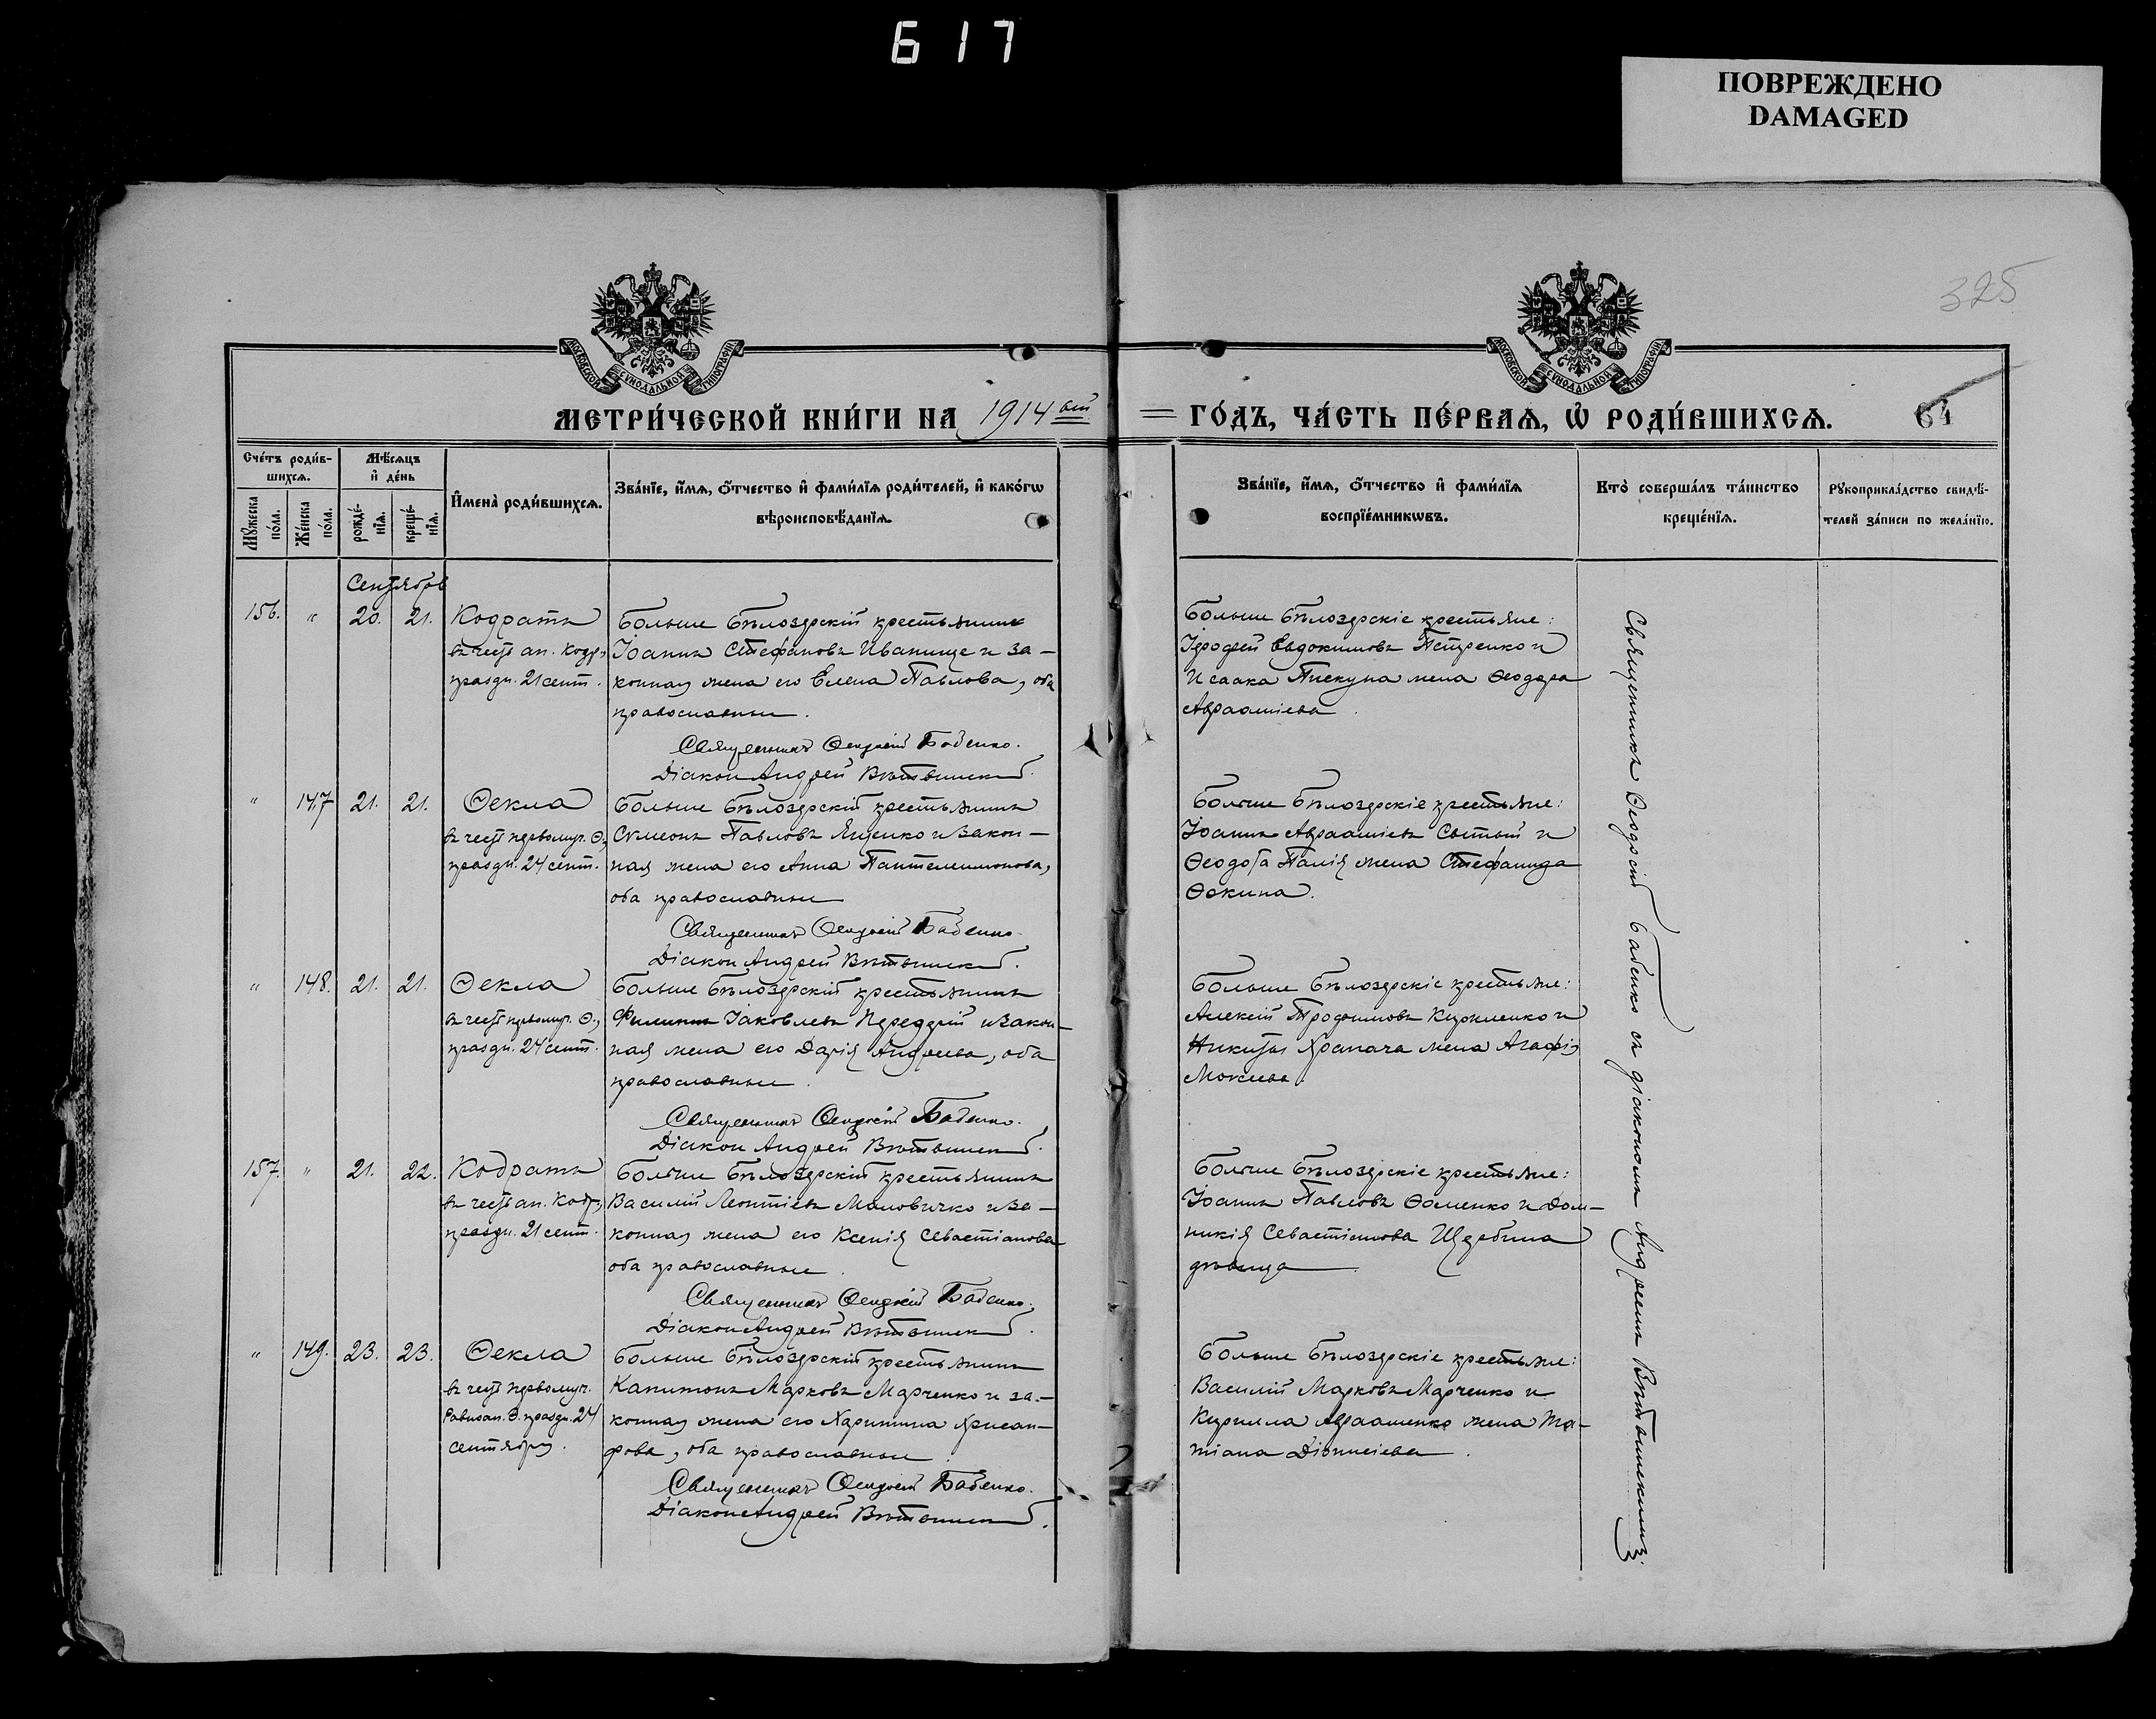 617
ПОВРЕЖДЕНО
DAMAGED
325
МОСКОВСКОЙ СѴНОДАЛЬНОЙ ТИПОГРАФІИ
МОСКОВСКОЙ СѴНОДАЛЬНОЙ ТИПОГРАФІИ
МЕТРИ́ЧЕСКОЙ КНИ́ГИ НА 1914 ый
ГО́ДЪ, ЧА́СТЬ ПЕ́РВАѦ, Ѡ҆ РОДИ́ВШИХСѦ.
64
Сче́тъ роди́в-
шихсѧ.
Мꙋ́жеска по́ла.
Же́нска по́ла.
Мѣ́сѧцъ
и҆ де́нь
рожде́-
нїѧ.
креще́-
нїѧ.
И҆мена̀ роди́вшихсѧ.
Зва́нїе, и҆́мѧ, ѻ҆́тчество и҆ фами́лїѧ роди́телей, и҆ како́гѡ
вѣроисповѣ́данїѧ.
Зва́нїе, и҆́мѧ, ѻ҆́тчество и҆ фами́лїѧ
воспрїе́мникѡвъ.
Кто̀ соверша́лъ та́инство
креще́нїѧ.
Рꙋкоприкла́дство свидѣ́-
телей за́писи по жела́нїю.
Сентябрь
156. " 20. 21. Кодратъ
въ честь ап. Кодр.,
праздн. 21 сент.
Больше Бѣлозерскій крестьянинъ
Іоаннъ Стефановъ Иванище и за-
конная жена его Елена Павлова, оба
православные.
Священникъ Ѳеодосій Бабенко.
Діаконъ Андрей
Больше Бѣлозерскіе крестьяне:
Іероѳей Евдокимовъ Петренко и
Исаака Пискуна жена Ѳеодора
Авраамiева.
" 147 21. 21. Ѳекла
въ честь первомуч. Ѳ.,
праздн. 24 сент.
Больше Бѣлозерскій крестьянинъ
Сѵмеонъ Павловъ Яценко и закон-
ная жена его Анна Пантелеимонова,
оба православные
Священникъ Ѳеодосій Бабенко.
Діаконъ Андрей
Больше Бѣлозерскіе крестьяне:
Іоаннъ Авраамiевъ Сытый и
Ѳеодота Палія жена Стефанида
Ѳокина.
" 148. 21. 21. Ѳекла
въ честь первомуч. Ѳ.,
праздн. 24 сент.
Больше Бѣлозерскій крестьянинъ
Филиппъ Іаковлевъ Передерій и закон-
ная жена его Дарія Андреева, оба
православные.
Священникъ Ѳеодосій Бабенко.
Діаконъ Андрей
Больше Бѣлозерскіе крестьяне:
Алексій Трофимовъ Кириленко и
Никиты Храпача жена Агафія
Мокіева.
157. " 21. 22. Кодратъ
въ честь ап. Кодр.,
праздн. 21 сент.
Больше Бѣлозерскій крестьянинъ
Василій Леонтіевъ Маловичко и за-
конная жена его Ксенія Севастіанова
оба православные.
Священникъ Ѳеодосій Бабенко.
Діаконъ Андрей
Больше Бѣлозерскіе крестьяне:
Іоаннъ Павловъ Ѳоменко и Дом-
никія Севастіанова Щербина
дѣвица.
" 149. 23. 23. Ѳекла
въ честь первомуч.
равноап. Ѳ. праздн. 24
сентября.
Больше Бѣлозерскій крестьянинъ
Капитонъ Марковъ Марченко и за-
конная жена его Харитина Хрисан-
фова, оба православные.
Священникъ Ѳеодосій Бабенко.
Діаконъ Андрей
Больше Бѣлозерскіе крестьяне:
Василій Марковъ Марченко и
Кирилла Авраменко жена Та-
тіана Діонисіева.
Священникъ Ѳеодосій Бабенко съ діакономъ Андреемъ